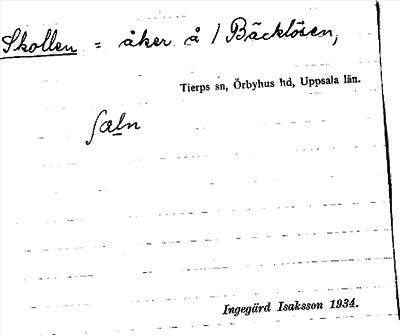 Skollen = åker å / Bäcklösen,
Tierps sn, Örbyhus hd, Uppsala län.
Ingegärd Isaksson 1934.